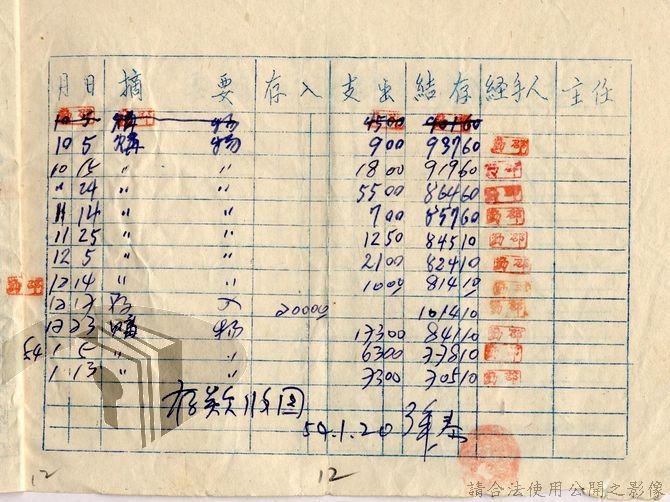 月 日 摘 要 存入 支出 結存 經手人 主任
10 5 購 物 4500 90160
10 5 購 物 900 93760
10 15 〃 〃 1800 91960
〃 24 〃 〃 5500 86460
11 14 〃 〃 700 85760
11 25 〃 〃 1250 84510
12 5 〃 〃 2100 82410
12 14 〃 〃 1000 81410
12 17 存 入 20000 101410
12 23 購 物 17300 84110
54 1 5 〃 〃 6300 77810
1 13 〃 〃 7300 70510
存款收回
54.1.20
12 12
請合法使用公開之影像